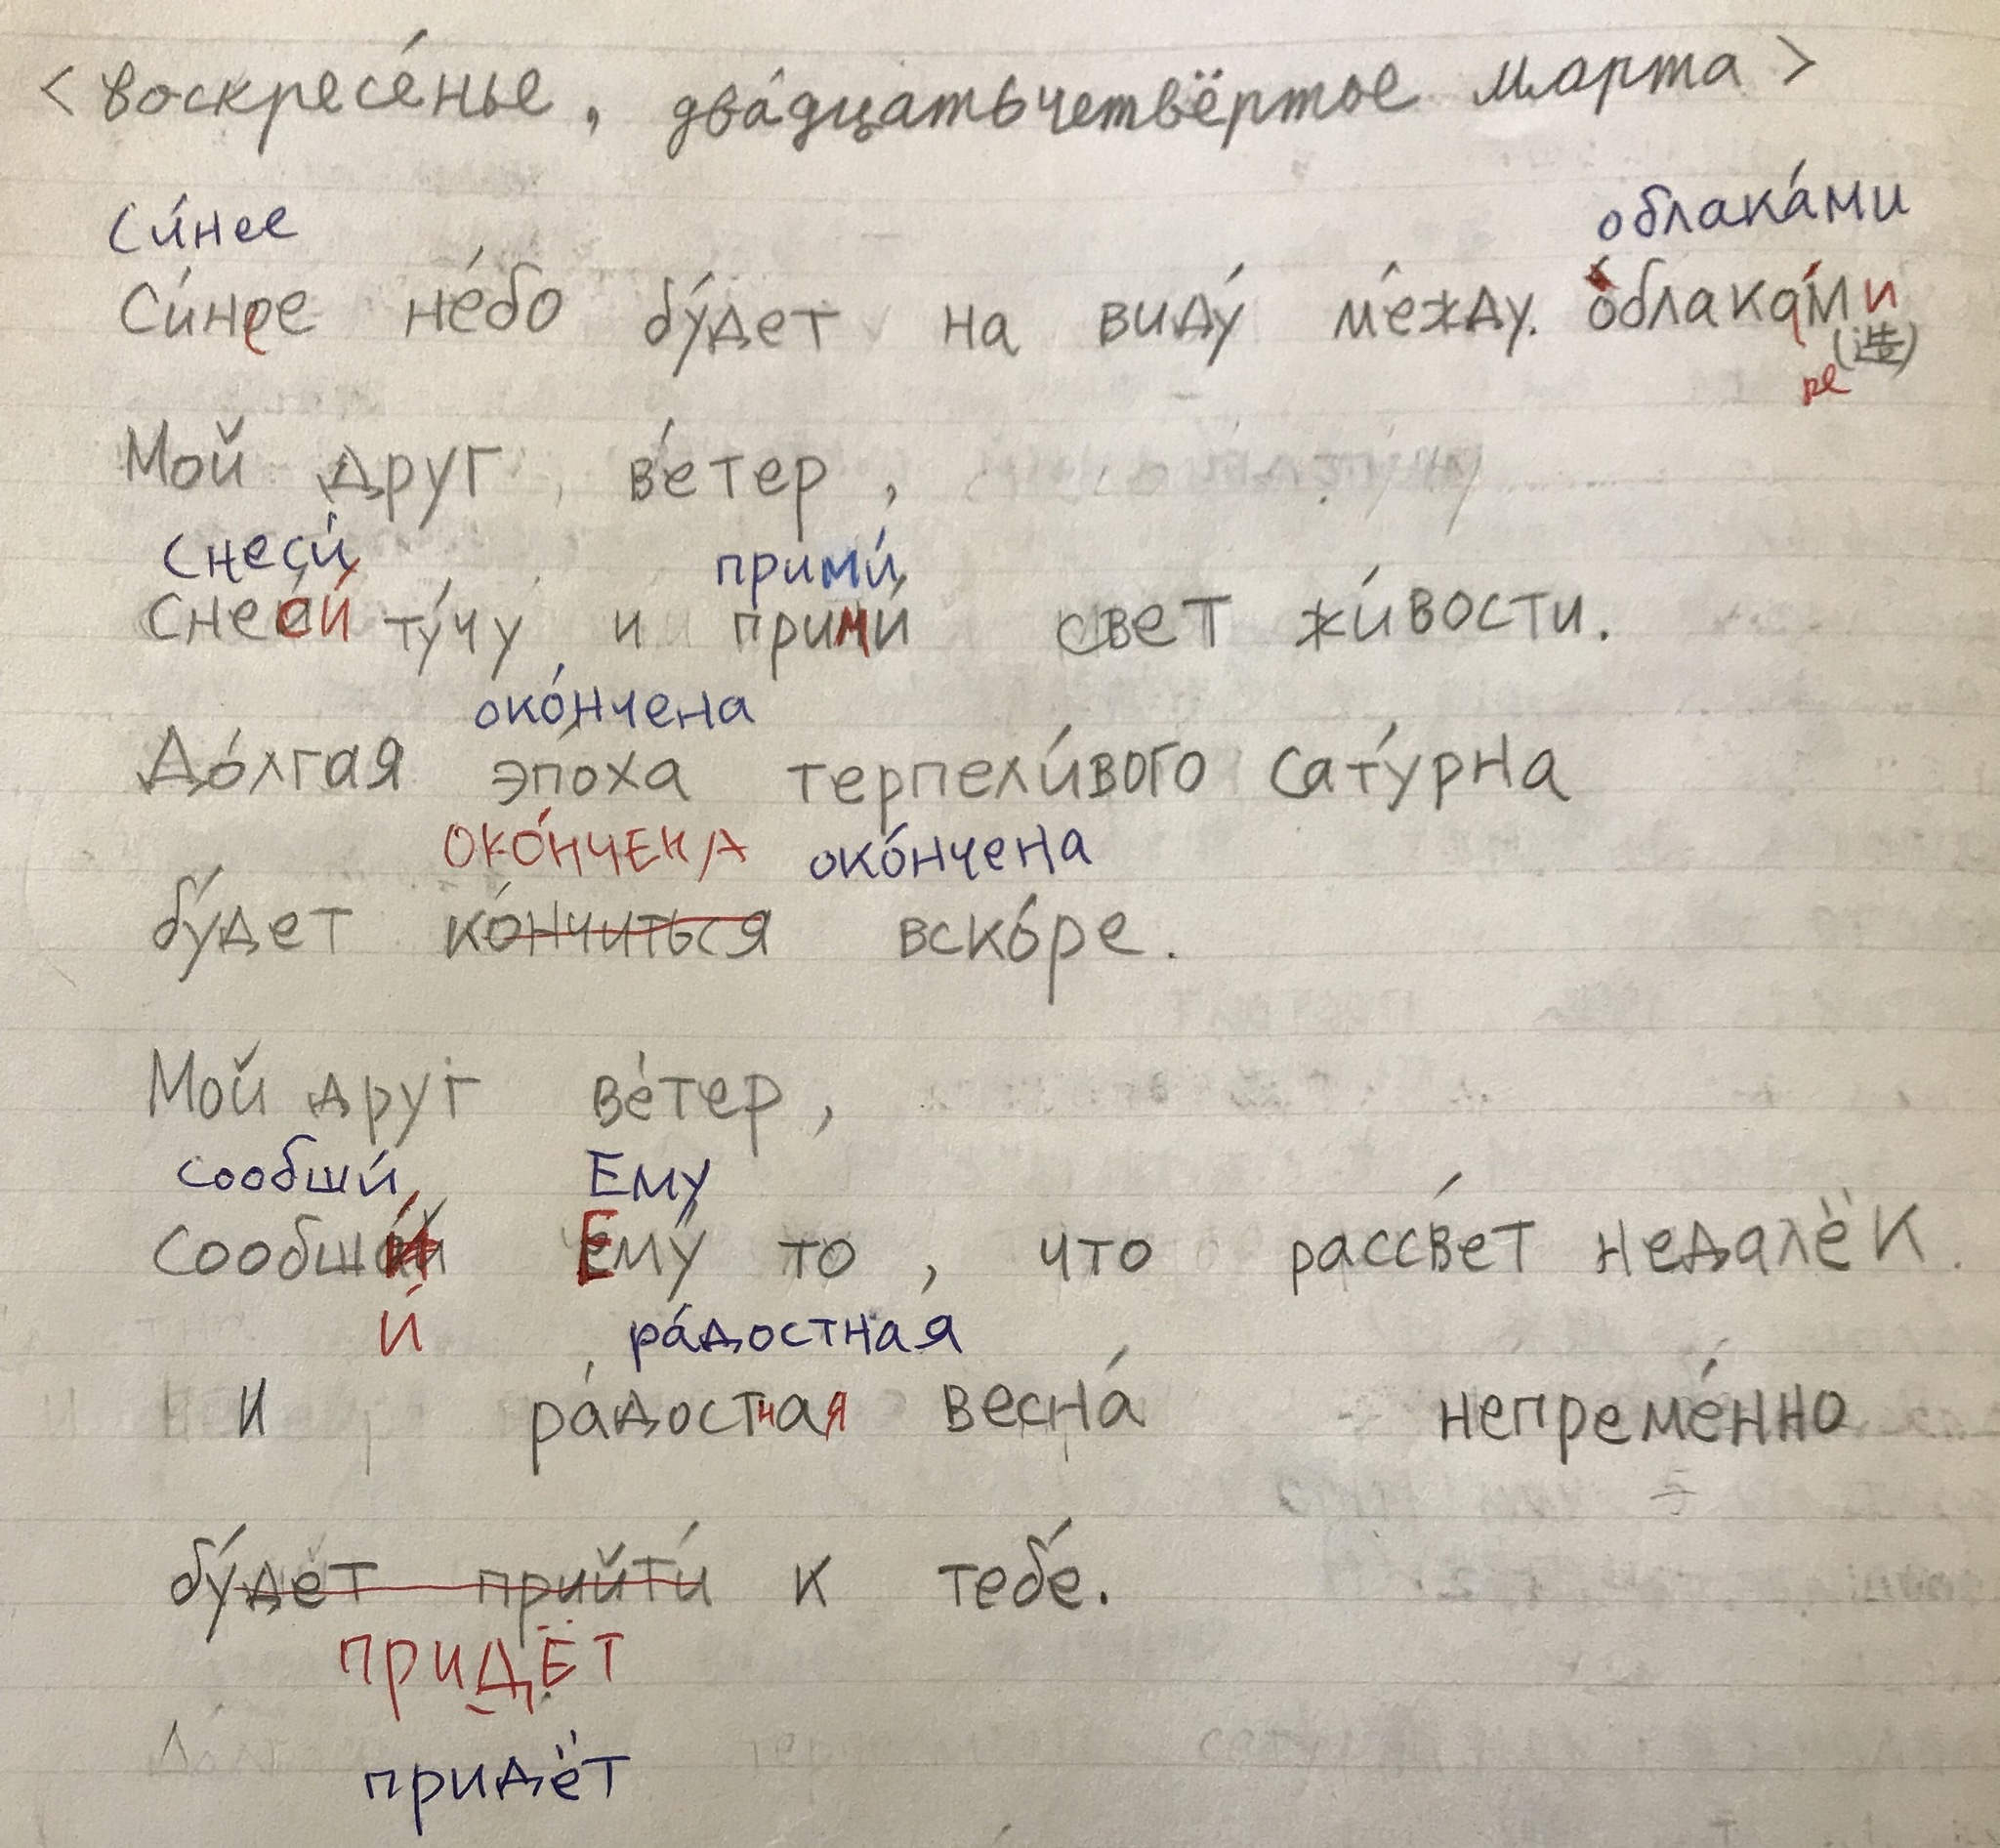 <воскресе́нье, два́дцатьчетвёртое марта>
Си́нее облака́ми
Си́нее не́бо бу́дет на виду́ ме́жду облака́ми
(造)
Мой друг ве́тер,
снеси́ прими́
снеси́ ту́чу и прими́ свет жи́вости.
око́нчена
До́лгая эпо́ха терпели́вого сату́рна
ОКО́НЧЕНА око́нчена
бу́дет ко́нчиться вско́ре.
Мой друг ве́тер,
сообши́ Ему
сообши́ Ему́ то, что рассве́т недалёк.
И́ ра́достная
и ра́достная весна́ непреме́нно
бу́дет прийти́ к тебе́.
ПРИДЁТ
придёт